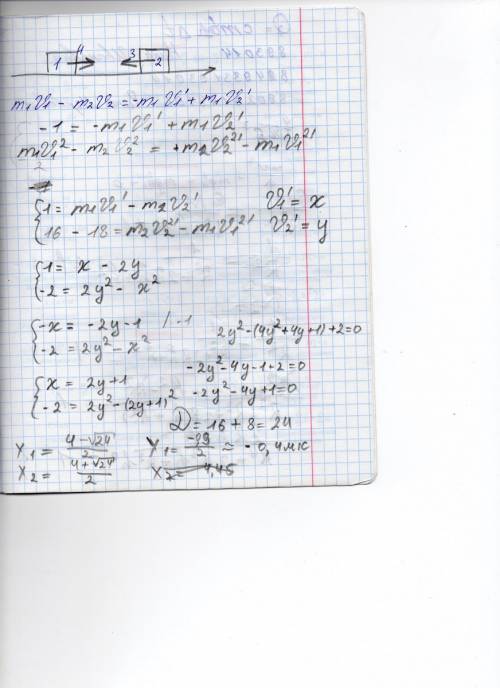 4 3
1 2
m₁V₁ - m₂V₂ = -m₁V₁' + m₁V₂'
-1 = -m₁V₁' + m₁V₂'
m₁V₁² - m₂V₂² = +m₂V₂²' - m₁V₁²'
2
{1 = m₁V₁' - m₂V₂' V₁' = x
{16 - 18 = m₂V₂²' - m₁V₁²' V₂' = y
{1 = x - 2y
{-2 = 2y² - x²
{-x = -2y - 1 / -1 2y² - (4y² + 4y + 1) + 2 = 0
{-2 = 2y² - x² -2y² - 4y - 1 + 2 = 0
{x = 2y + 1 -2y² - 4y + 1 = 0
{-2 = 2y² - (2y + 1)²
D = 16 + 8 = 24
x₁ = (4 - √24)/2 x₁ = /2 ≈ -0,4 м/с
x₂ = (4 + √24)/2 x₂ = 4,45